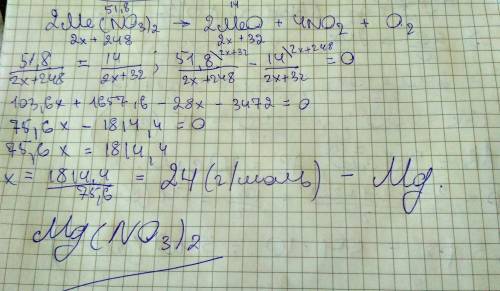 51,8 14
2Me(NO₃)₂ → 2MeO + 4NO₂ + O₂
2x + 248 2x + 32
51,8/(2x+248) = 14/(2x+32) ; 51,8\2x+32/(2x+248) - 14\2x+248/(2x+32) = 0
103,6x + 1657,6 - 28x - 3472 = 0
75,6x - 1814,4 = 0
75,6x = 1814,4
x = 1814,4/75,6 = 24 (г/моль) - Mg.
Mg(NO₃)₂